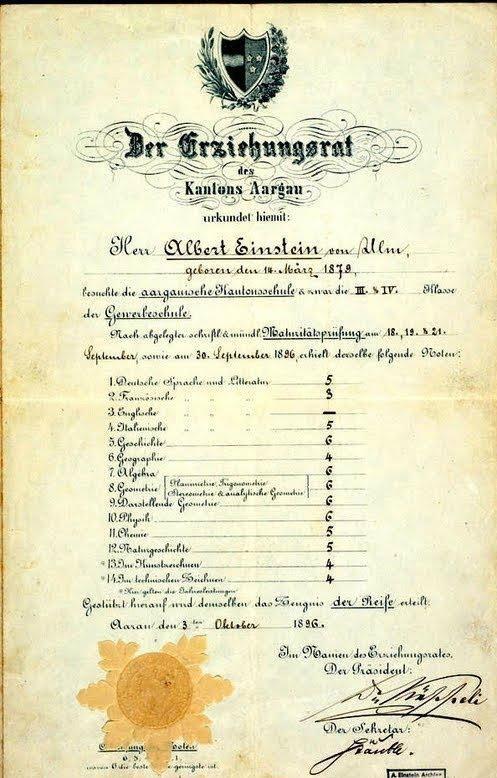 Der Erziehungsrat
des
Kantons Aargau
urkundet hiemit:
Herr Albert Einstein von Ulm,
geboren den 14. März 1879,
besuchte die aargauische Kantonsschule & zwar die III. & IV. Klasse
der Gewerbeschule.
Nach abgelegter schriftl. & mündl. Maturitätsprüfung am 18., 19. & 21.
September, sowie am 30. September 1896, erhielt derselbe folgende Noten:
1. Deutsche Sprache und Litteratur 5
2. Französische " " " 3
3. Englische " " " —
4. Italienische " " " 5
5. Geschichte 6
6. Geographie 4
7. Algebra 6
8. Geometrie Planimetrie, Trigonometrie 6
Stereometrie & analytische Geometrie
9. Darstellende Geometrie 6
10. Physik 6
11. Chemie 5
12. Naturgeschichte 5
*13. Im Kunstzeichnen 4
*14. Im technischen Zeichnen 4
* Hier gelten die Jahresleistungen
Gestützt hierauf wird demselben das Zeugnis der Reife erteilt.
Aarau den 3ten Oktober 1896.
Im Namen des Erziehungsrates,
Der Präsident:
Der Sekretär:
Noten
6.
A. Einstein Archives